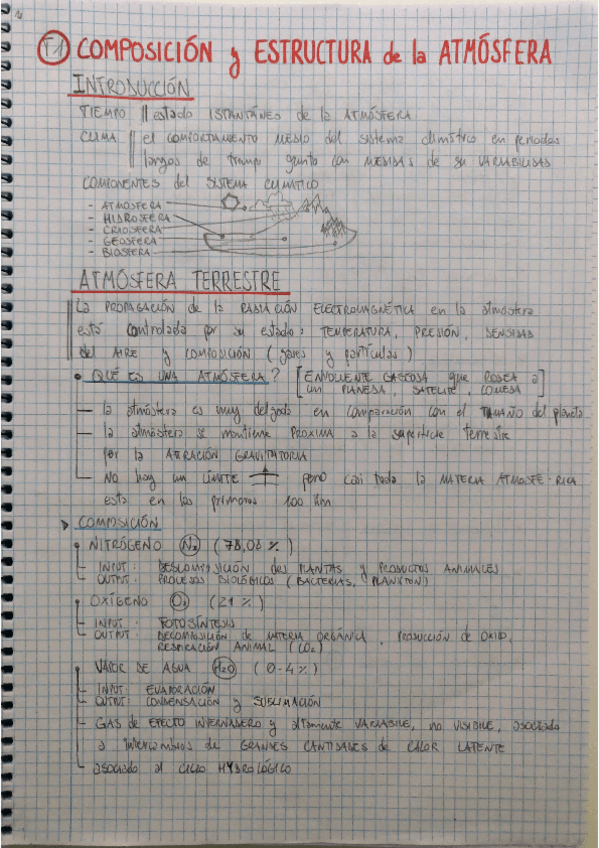 T1 COMPOSICIÓN y ESTRUCTURA de la ATMÓSFERA
INTRODUCCIÓN
TIEMPO || estado ISTANTÁNEO de la ATMÓSFERA
CLIMA || el COMPORTAMENTO MEDIO del sistema climático en periodos
largos de tiempo junto con MEDIDAS de su VARIABILIDAD
COMPONENTES del SISTEMA CLIMÁTICO
- ATMOSFERA
- HIDROSFERA
- CRIOSFERA
- GEOSFERA
- BIOSFERA
ATMÓSFERA TERRESTRE
La PROPAGACIÓN de la RADIACIÓN ELECTROMAGNÉTICA en la atmósfera
está controlada por su estado: TEMPERATURA, PRESIÓN, DENSIDAD
del AIRE y COMPOSICIÓN (gases y partículas)
• QUÉ ES UNA ATMÓSFERA? [ENVOLVENTE GASEOSA que RODEA a
un PLANEDA, SATELITE, COMEDA]
— la atmósfera es muy delgada en comparación con el TAMAÑO del planeta
— la atmósfera se mantiene PROXIMA a la superficie terrestre
por la ATRACIÓN GRAVITATORIA
— NO hay un LÍMITE pero casi toda la MATERIA ATMOSFÉRICA
esta en los primeros 100 km
COMPOSICIÓN
• NITRÓGENO N2 (78,08 %)
- INPUT: DESCOMPOSICIÓN des PLANTAS y PRODUCTOS ANIMALES
- OUTPUT: PROCESOS BIOLÓGICOS (BACTERIAS, PLANKTON)
• OXÍGENO O2 (21 %)
- INPUT: FOTOSÍNTESIS
- OUTPUT: DECOMPOSICIÓN de MATERIA ORGÁNICA, PRODUCCIÓN de OXID,
RESPIRACIÓN ANIMAL (CO2)
• VAPOR DE AGUA H2O (0-4 %)
- INPUT: EVAPORACIÓN
- OUTPUT: CONDENSACIÓN y SUBLIMACIÓN
- GAS de EFECTO INVERNADERO y altamente VARIABILE, no VISIBILE, asociado
a intercambios de GRANDES CANTIDADES de CALOR LATENTE
- asociado al CICLO HYDROLÓGICO